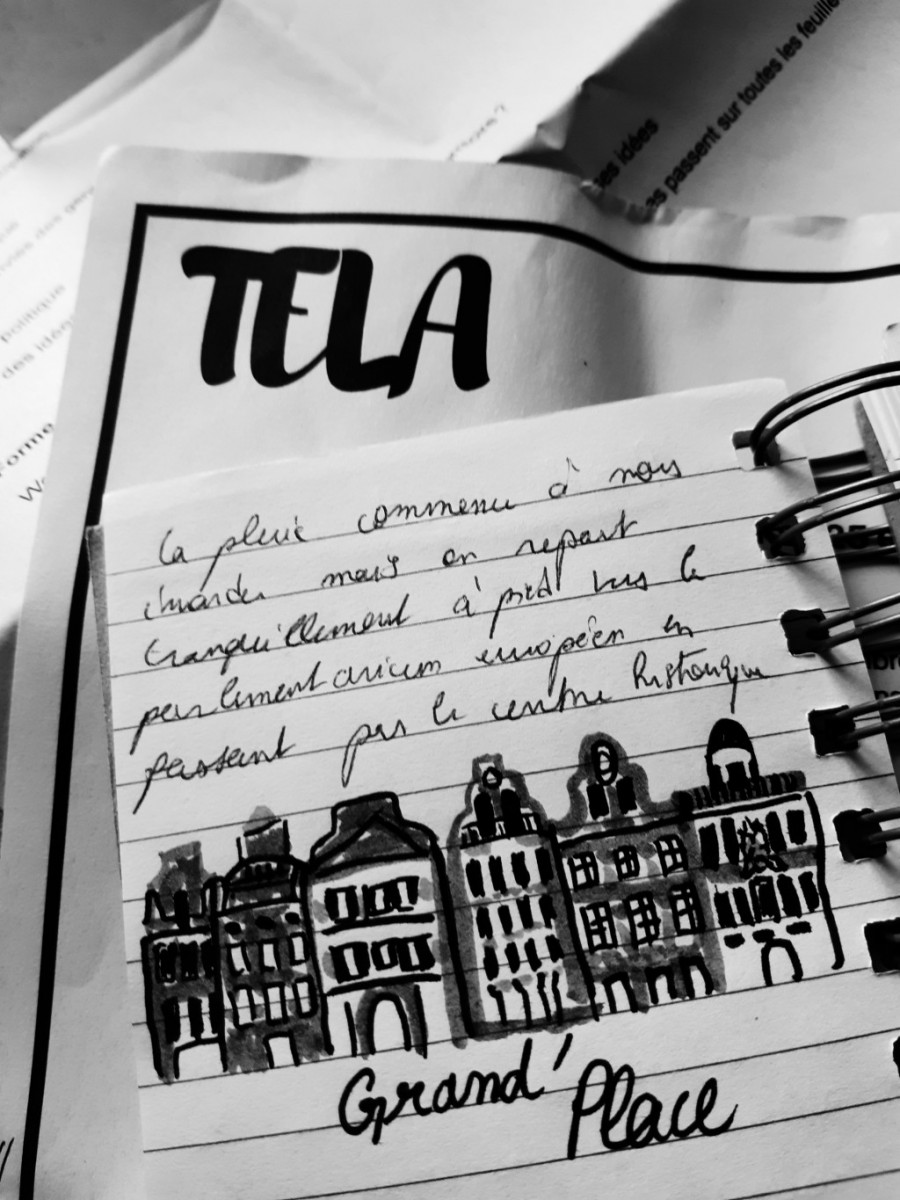 ses idées
as passent sur toutes les feuille
politique
des idée
TELA
la pluie commence à nous
inonder mais on repart
tranquillement à pied vers le
parlementarium européen en
passant par le centre historique
Grand' Place